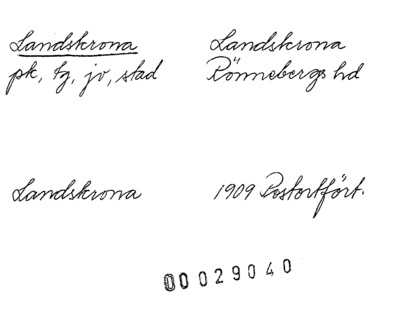 Landskrona Landskrona
pk, tg, jv, stad Rönnebergs hd
Landskrona 1909 Postortfört.
00029040